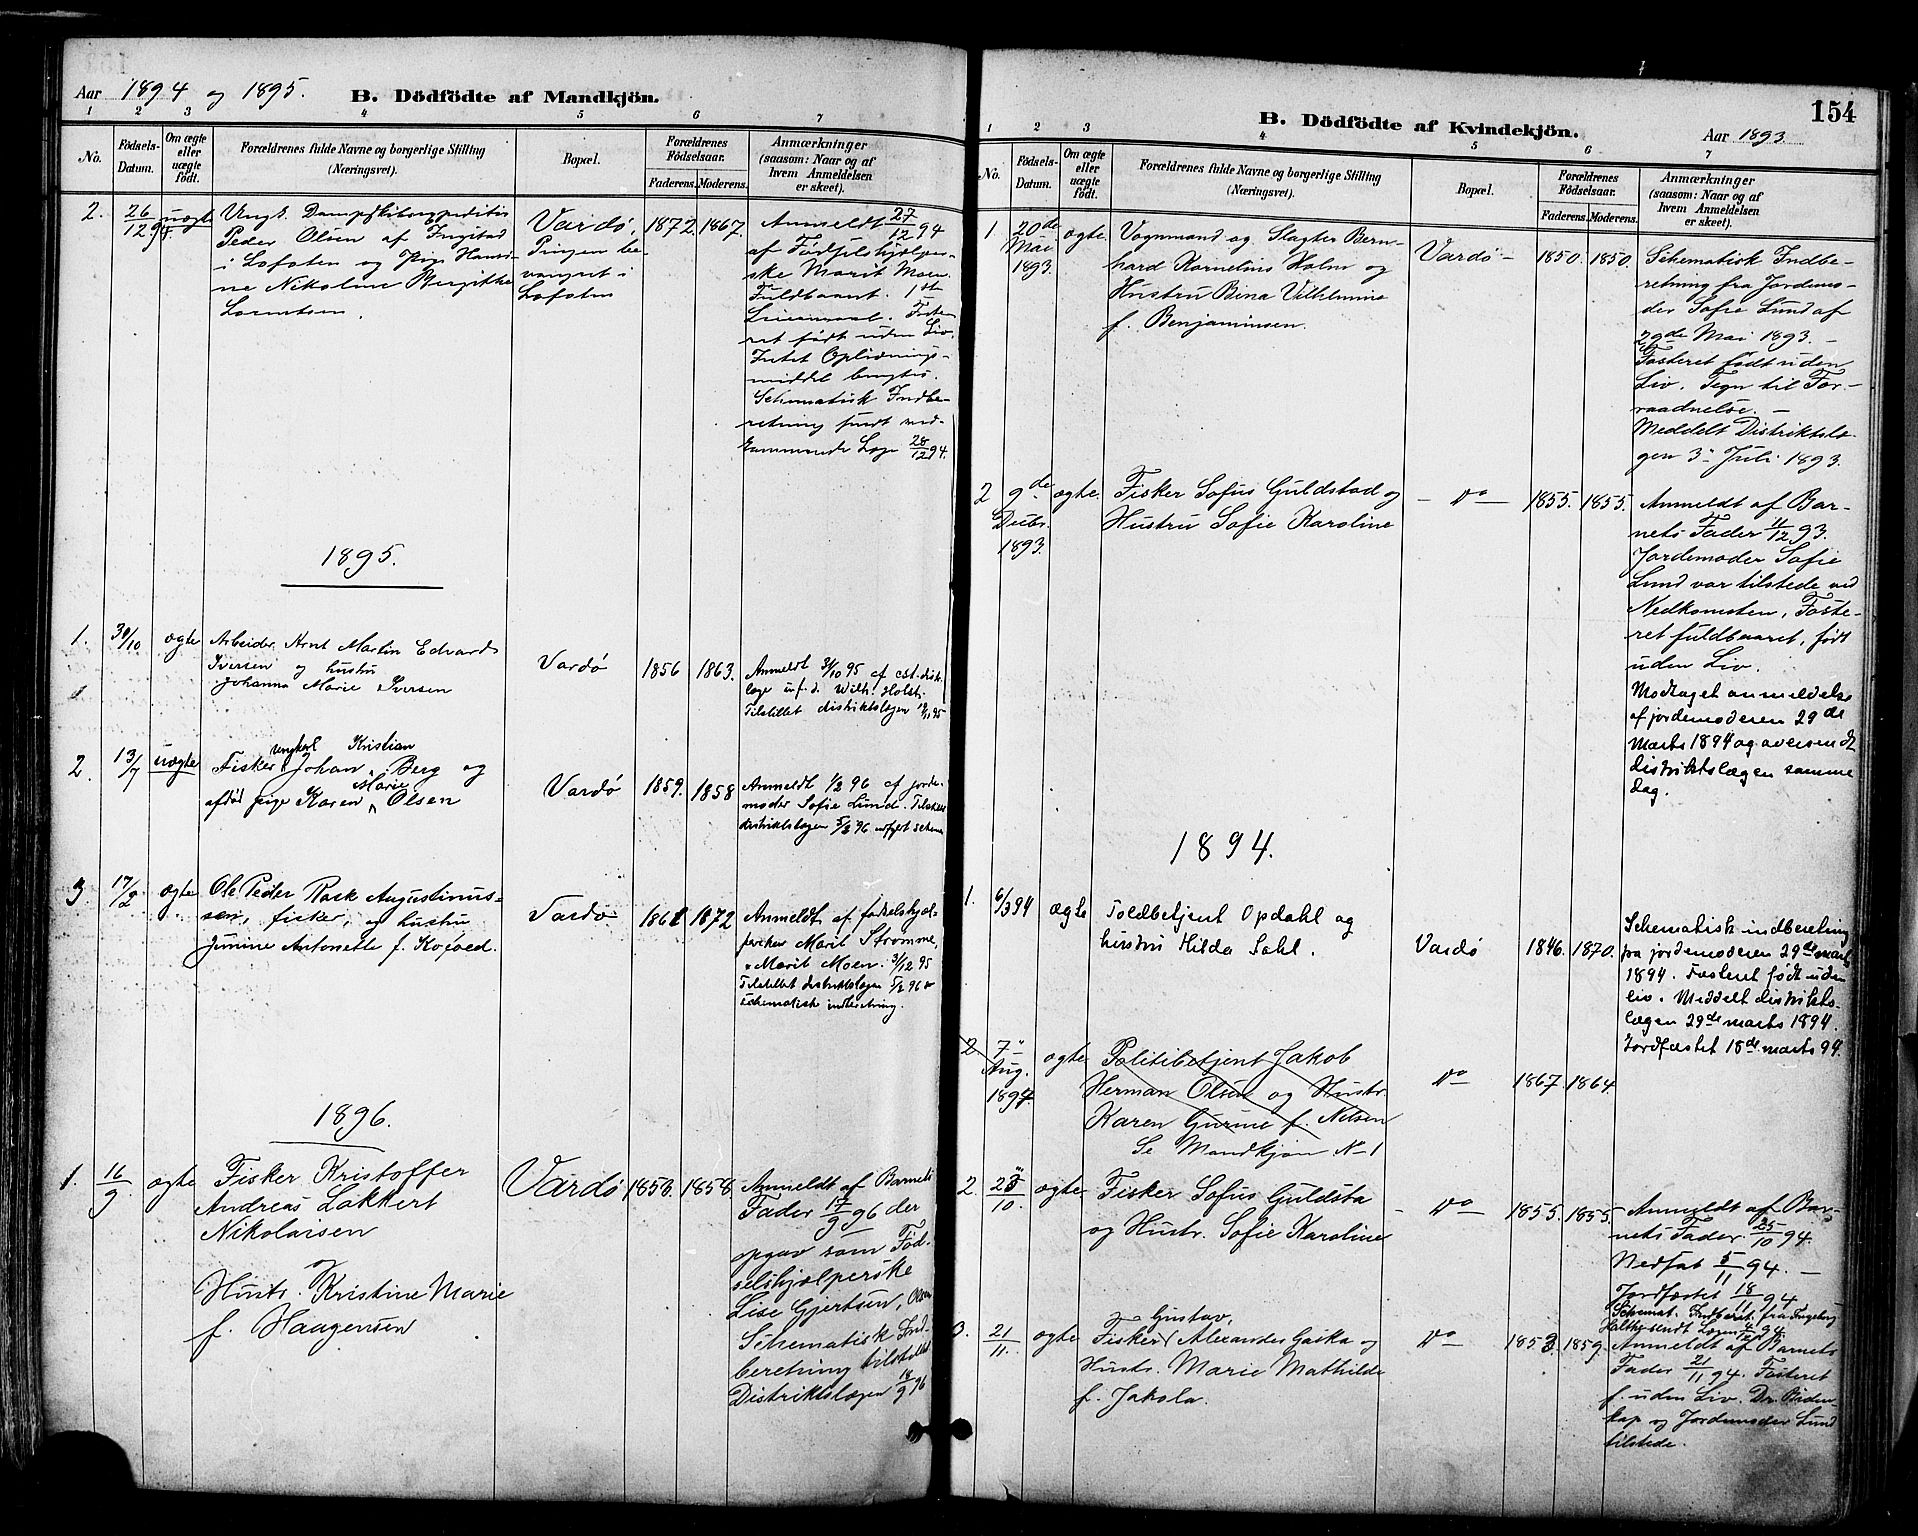 Aar 1894 og 1895.
B. Dödfödte af Mandkjön.
1 2 3 4 5 6 7
No.
Födsels-
Datum.
Om ægte
eller
uægte
født.
Forældrenes fulde Navne og borgerlige Stilling
(Næringsvei).
Bopæl.
Forældrenes
Fødselsaar.
Faderens. Moderens.
Anmærkninger
(saasom: Naar og af
hvem Anmeldelsen
er skeet).
2. 26/12 94 uægte
Ungk. Dampskibsexpeditør
Peder Olsen af
i Lofoten og Pige Hans-
ine Nikoline Bergitte
Lorentsen.
Vardø,
Pigen be-
vangret i
Lofoten
1872. 1867.
Anmeldt 27/12 94
af Fødselshjælper-
ske Marit Moen
Fuldbaaret. 1ste
Svangerskab. Foste-
ret født uden Liv.
Intet Oplivnings-
middel brugtes.
Schematisk Indbe-
retning sendt ved-
kommende Læge 28/12 94.
1895.
1. 30/10 ægte
Arbeider Arnt Martin Edvard
Iversen og hustru
Johanna Marie Iversen
Vardø 1856 1863.
Anmeldt 31/10 95 af cst. distr.
læge Wilh. Holst.
Tilstillet distriktslægen 12/11 95
2. 13/7 uægte
ungkarl Kristian
Fisker Johan Berg og
Marie
afdød pige Karen Olsen
Vardø 1859. 1858
Anmeldt 1/2 96 af jorde-
moder Sofie Lund. Tilstillet
distriktslægen 5/2 96 udfyldt schema
3 17/2 ægte
Ole Peder Rask Augustinus-
sen, fisker, og hustru
Junine Antonette f. Kofoed.
Vardø 1861 1872
Anmeldt af fødselshjæl-
persken Marit Strømme,
Marit Moen. 31/12 95
Tilstillet distriktslægen 5/2 96
schematisk indberetning.
1896.
1. 16/9. ægte
Fisker Kristoffer
Andreas Lokkert
Nikolaisen
og
Hustr. Kristine Marie
f. Haagensen
Vardø 1853. 1858.
Anmeldt af Barnets
Fader 17/9 96 der
opgav som Fød-
selshjælperske
Lise Gjertsen,
Schematisk Ind-
beretning tilstillet
Distriktslægen 18/9 96
154
B. Dödfödte af Kvindekjön.
Aar 1893.
1 2 3 4 5 6 7
No.
Födsels-
Datum.
Om ægte
eller
uægte
født.
Forældrenes fulde Navne og borgerlige Stilling
(Næringsvei).
Bopæl.
Forældrenes
Fødselsaar.
Faderens. Moderens.
Anmærkninger
(saasom: Naar og af
hvem Anmeldelsen
er skeet).
1. 20de Mai 1893. ægte
Vognmand og Slagter Bern-
hard Kornelius Holm og
Hustru Bina Vilhelmine
f. Benjaminsen.
Vardø 1850. 1850.
Schematisk Indbe-
retning fra Jordemo-
der Sofie Lund af
29de Mai 1893. –
Fosteret født uden
Liv. Tegn til For-
raadnelse. –
Meddelt Distriktslæ-
gen 3. Juli 1893.
2 9de Decbr. 1893. ægte.
Fisker Sofus Guldstad og
Hustru Sofie Karoline
– Do – 1855. 1855.
Anmeldt af Bar-
nets Fader 11/12 93.
Jordemoder Sofie
Lund var tilstede ved
Nedkomsten, Foste-
ret fuldbaaret, født
uden Liv.
Modtaget anmeldelse
af jordemoderen 29de
Marts 1894 og oversendt
distriktslægen samme
dag.
1894.
1. 6/3 94 ægte
Toldbetjent Opdahl og
hustru Hilda Dahl.
Vardø 1846. 1870.
Schematisk indberetning
fra jordemoderen 29de marts
1894. Fosteret født uden
liv. Meddelt distrikts-
lægen 29de marts 1894.
Jordfæstet 18de marts 94.
2 7 Aug. 1894 ægte
Politibetjent Jakob
Herman Olsen og Hustr.
Karen Gurine f. Nilsen
Se Mandkjøn No 1
Do 1867. 1864.
2. 23/10. ægte
Fisker Sofus Guldsta
og Hustr. Sofie Karoline
– Do – 1855. 1855.
Anmeldt af Bar-
nets Fader 25/10 94.
Nedsat 5/11 94. –
Jordfæstet 18/11 94
Schemat. Indberet. fra Ingeborg
Læge
3. 21/11. ægte
Gustav,
Fisker Alexander Gaika og
Hustr. Marie Mathilde
f. Jakola.
Do 1853. 1859.
Anmeldt af Barnets
Fader 21/11 94. Fosteret
f. uden Liv. Dr. Biden-
kap og Jordemoder Lund
tilstede.